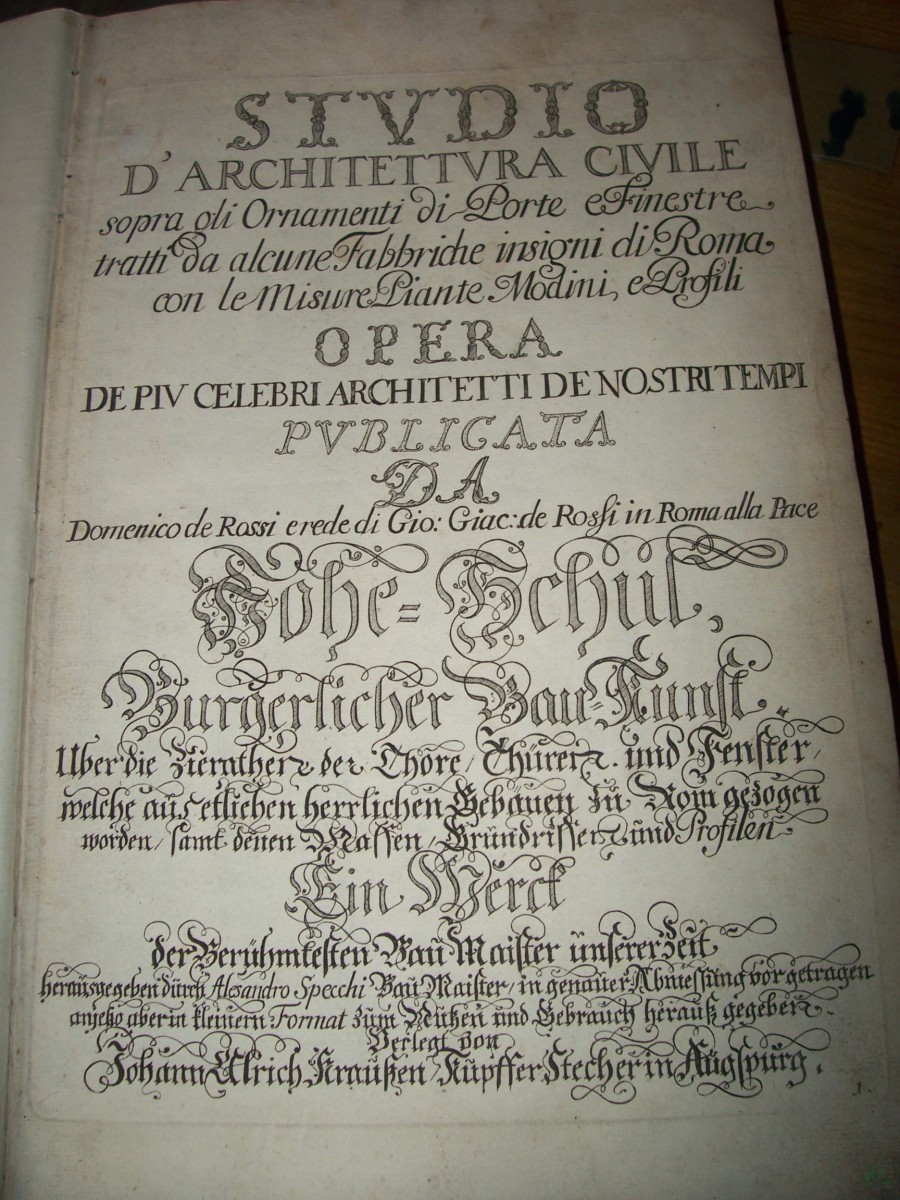 STVDIO
D'ARCHITETTVRA CIVILE
sopra gli Ornamenti di Porte e Finestre
tratti da alcune Fabbriche insigni di Roma
con le Misure Piante Modini, e Profili
OPERA
DE PIV CELEBRI ARCHITETTI DE NOSTRI TEMPI
PVBLICATA
DA
Domenico de Rossi erede di Gio: Giac: de Rossi in Roma alla Pace
Hohe-Schul,
Burgerlicher Bau-Kunst.
Uber die Zierathen der Thore, Thüren. und Fenster,
welche aus etlichen herrlichen Gebäuen zu Rom gezogen
worden, samt denen Massen, Grundrissen und Profilen
Ein Werck
der Berühmtesten Bau Maister unserer Zeit
herausgegeben durch Alesandro Specchi Bau Maister, in genauer Abmessung vorgetragen
anjetzo aber in kleinern Format zum Nutzen und Gebrauch herauß gegeben.
Verlegt von
Johann Ulrich Kraußen, Kupffer Stecher in Augspurg.